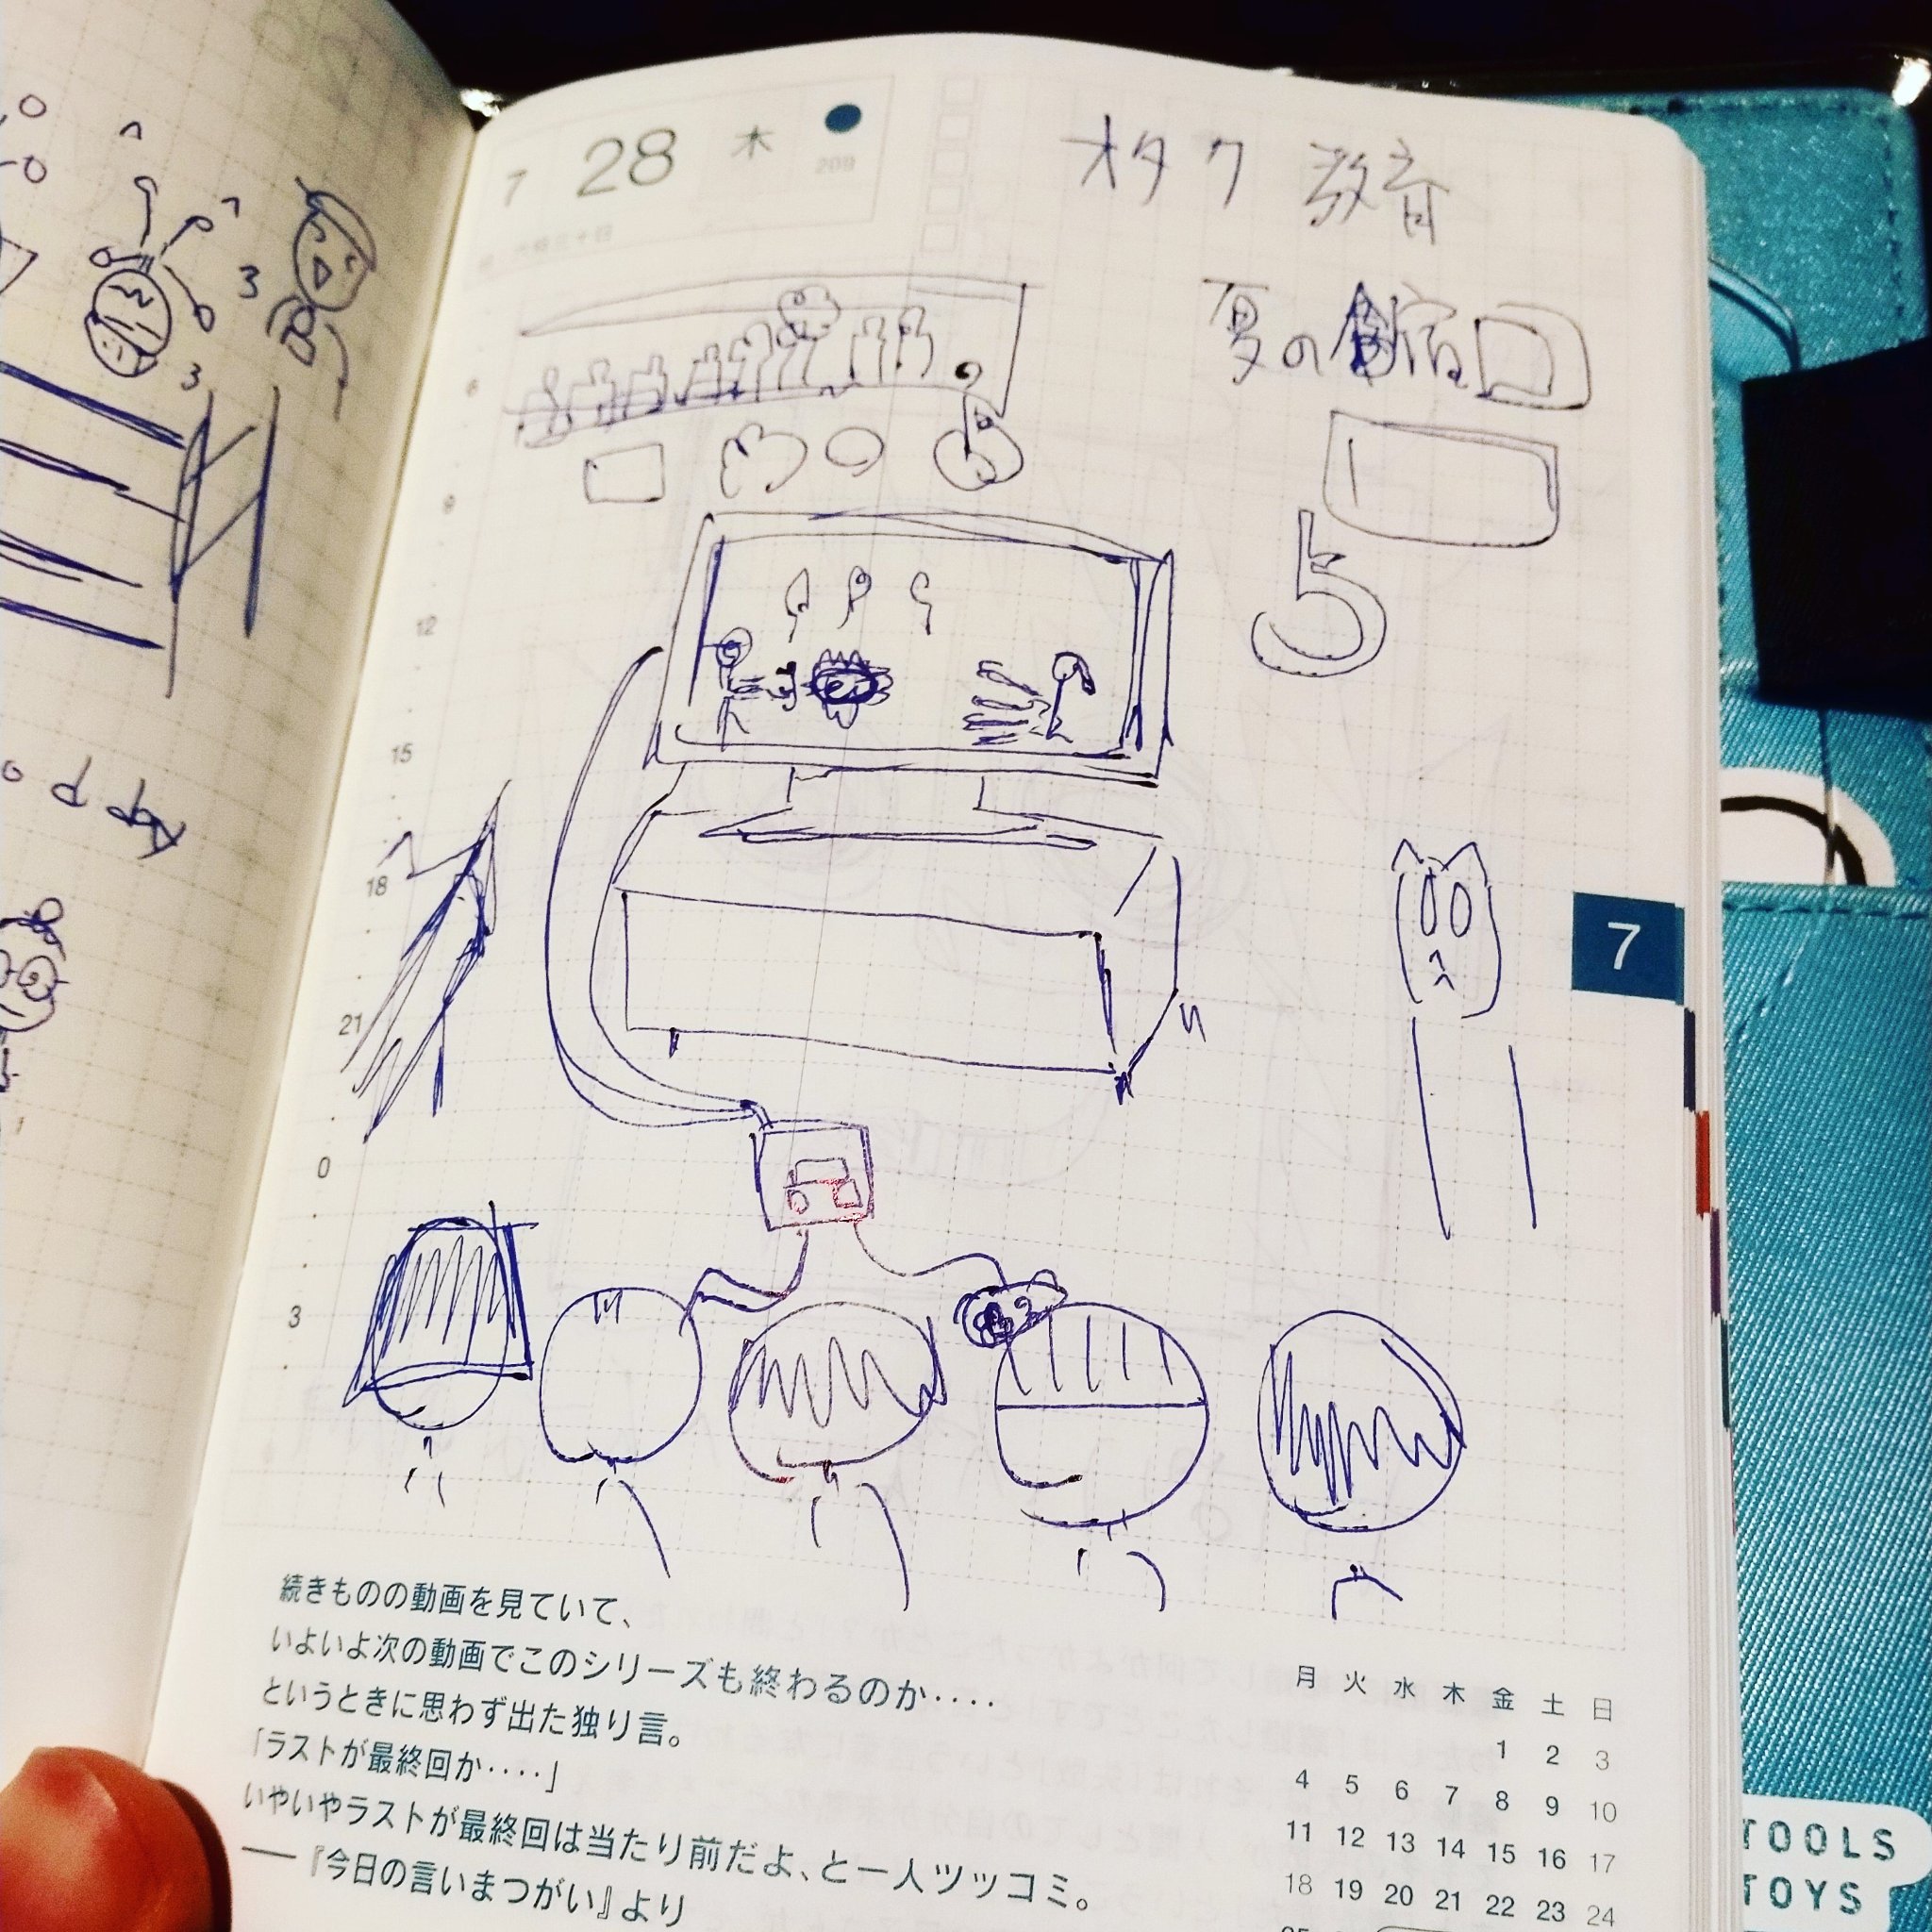 7 28 木
2011
オタク 教育
夏の合宿
5
6
9
12
15
18
21
0
3
7
続きものの動画を見ていて、
いよいよ次の動画でこのシリーズも終わるのか‥‥
というときに思わず出た独り言。
「ラストが最終回か‥‥」
いやいやラストが最終回は当たり前だよ、と一人ツッコミ。
──『今日の言いまつがい』より
月 火 水 木 金 土 日
1 2 3
4 5 6 7 8 9 10
11 12 13 14 15 16 17
18 19 20 21 22 23 24
TOOLS
TOYS